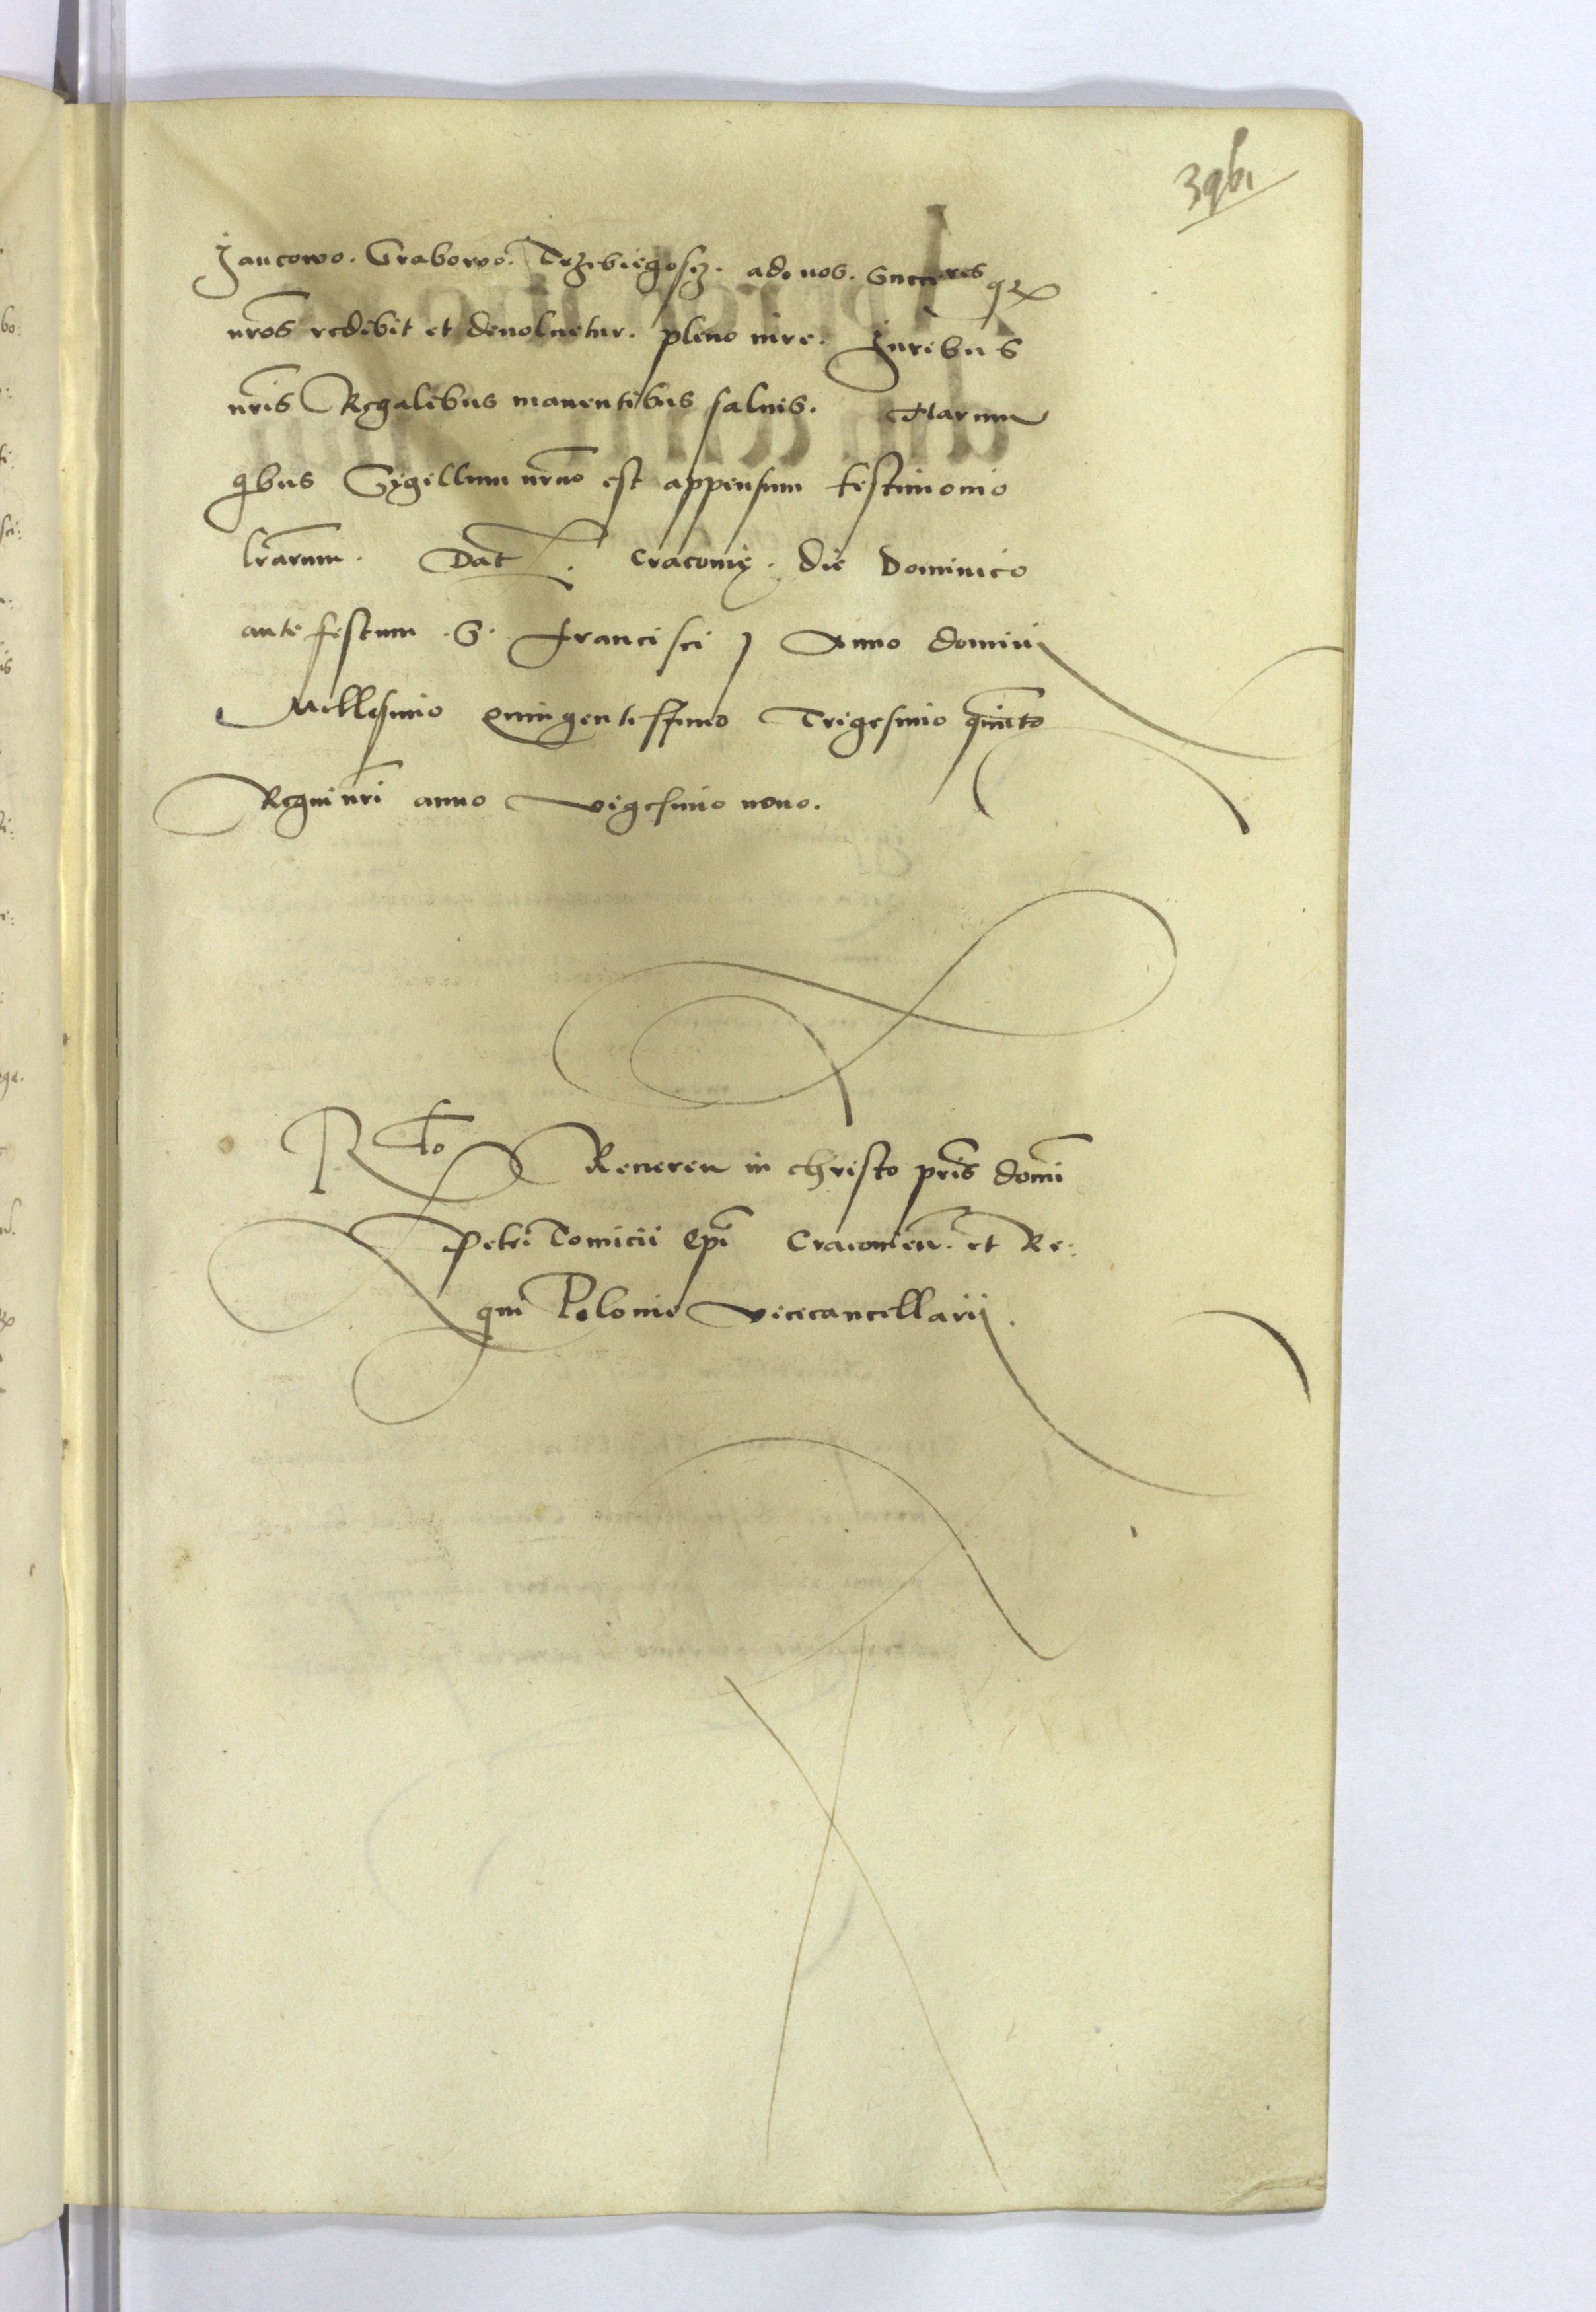 Jancowo. Grabowo. Trzebiegosch. ad nos. Succeres qz
nros redibit et deuoluetur. pleno iure. Juribus
nris Regalibus manentibus saluis. Harum
qbus Sygillum nrum est appensum testimonio
lrarum. Dat. Cracouie. die Dominico
ante festum .S. Francisci Anno domini
Millesimo quingentessimo Trigesimo quinto
Regni nri anno vigesimo nono.
Rlto Reueren in christo pris domi
Petri Tomicii Epi Cracouien. et Re:
gni Polonie vicecancellarij.